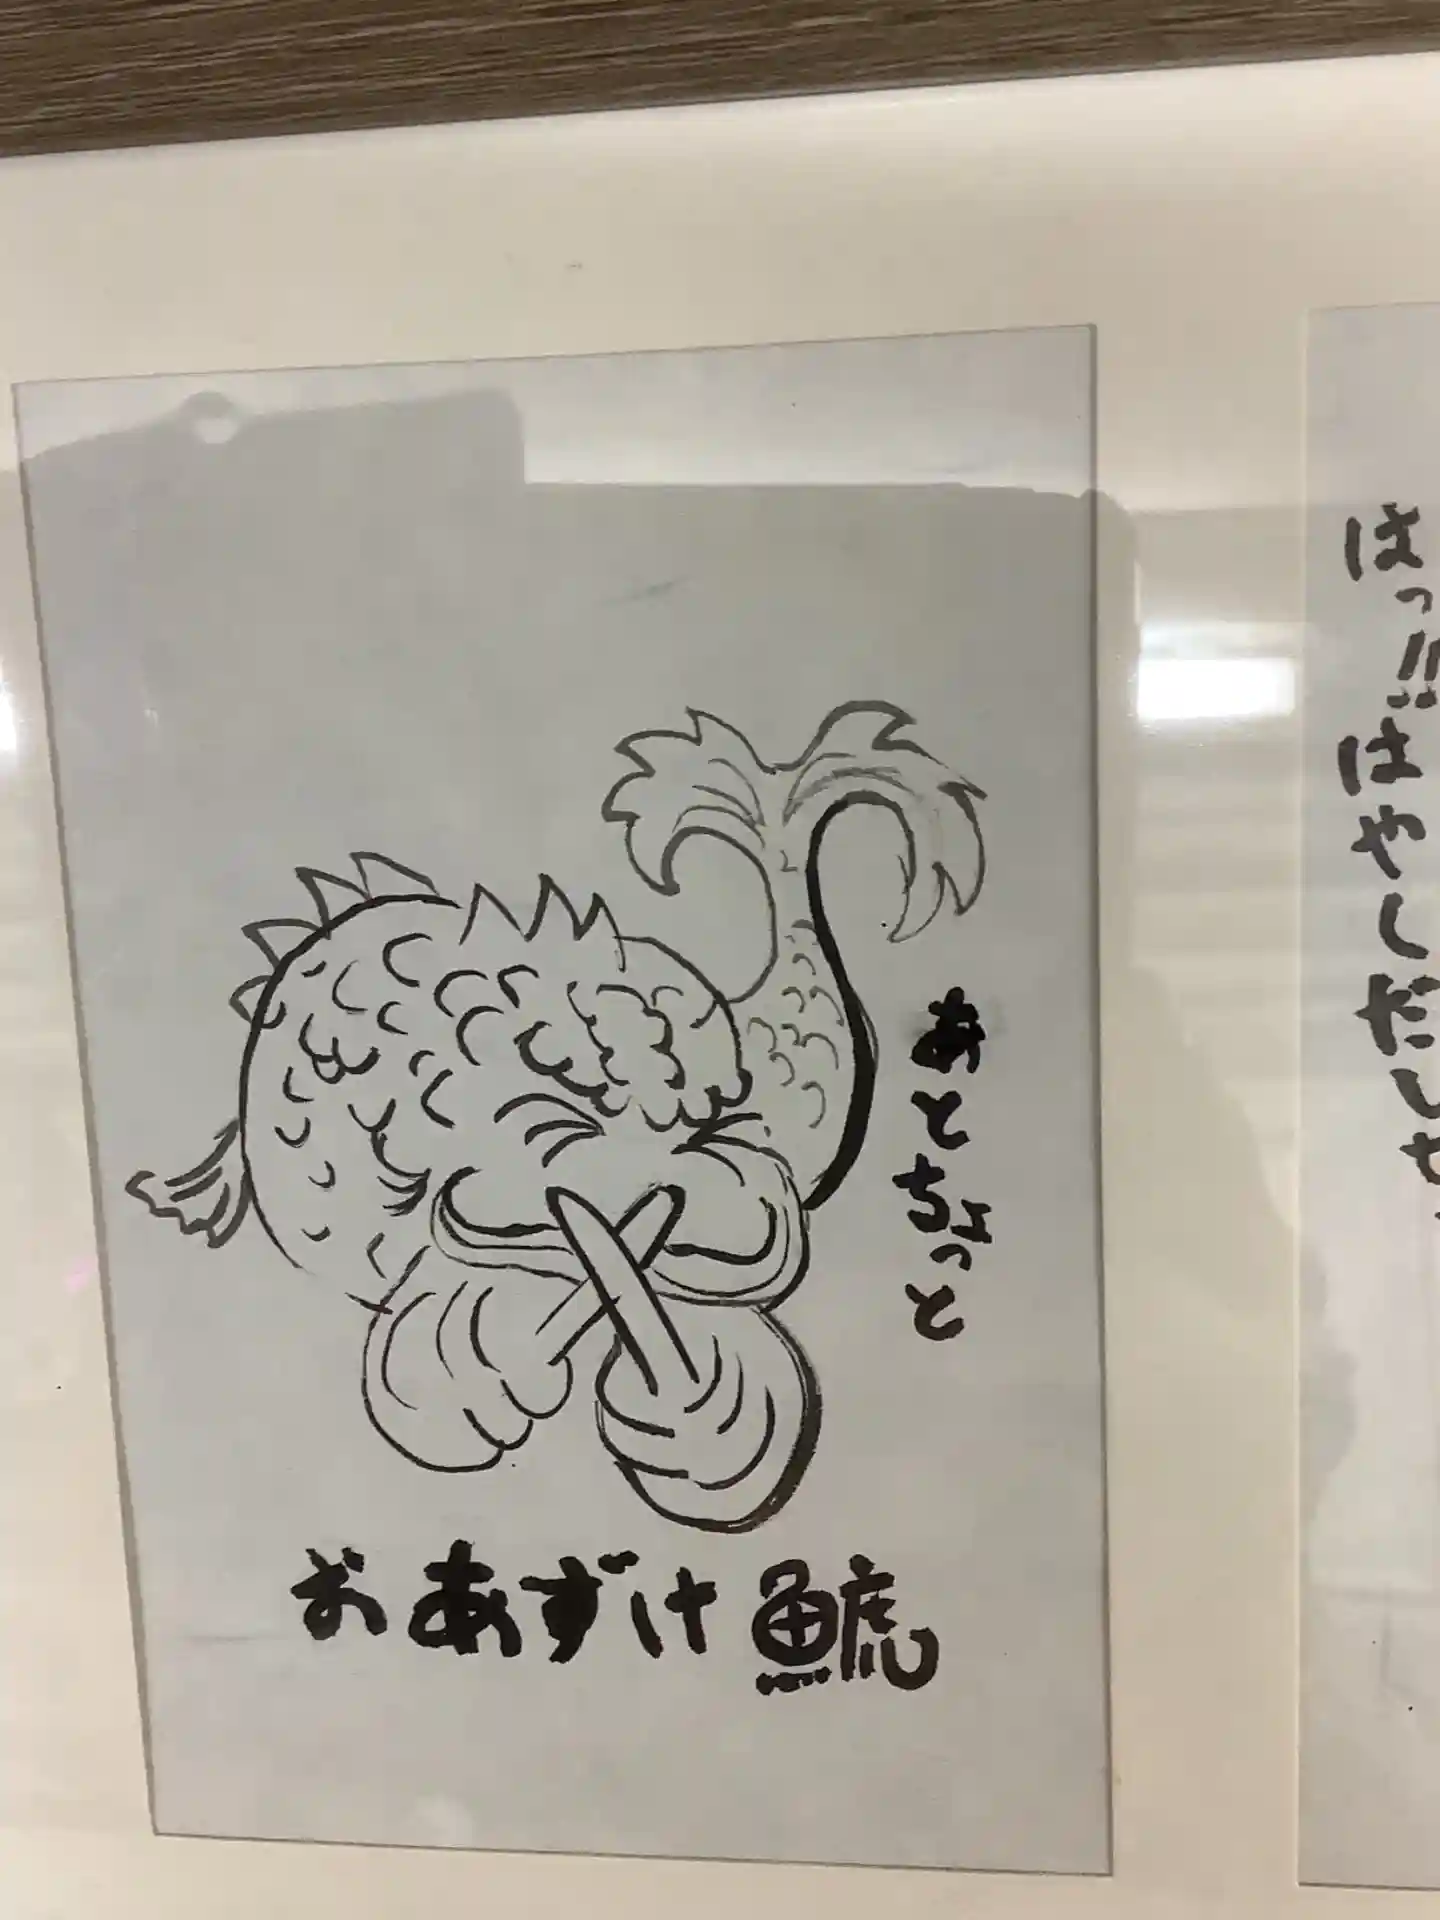 あとちょっと
おあずけ鯱
はっ!!はやしだしⱠ